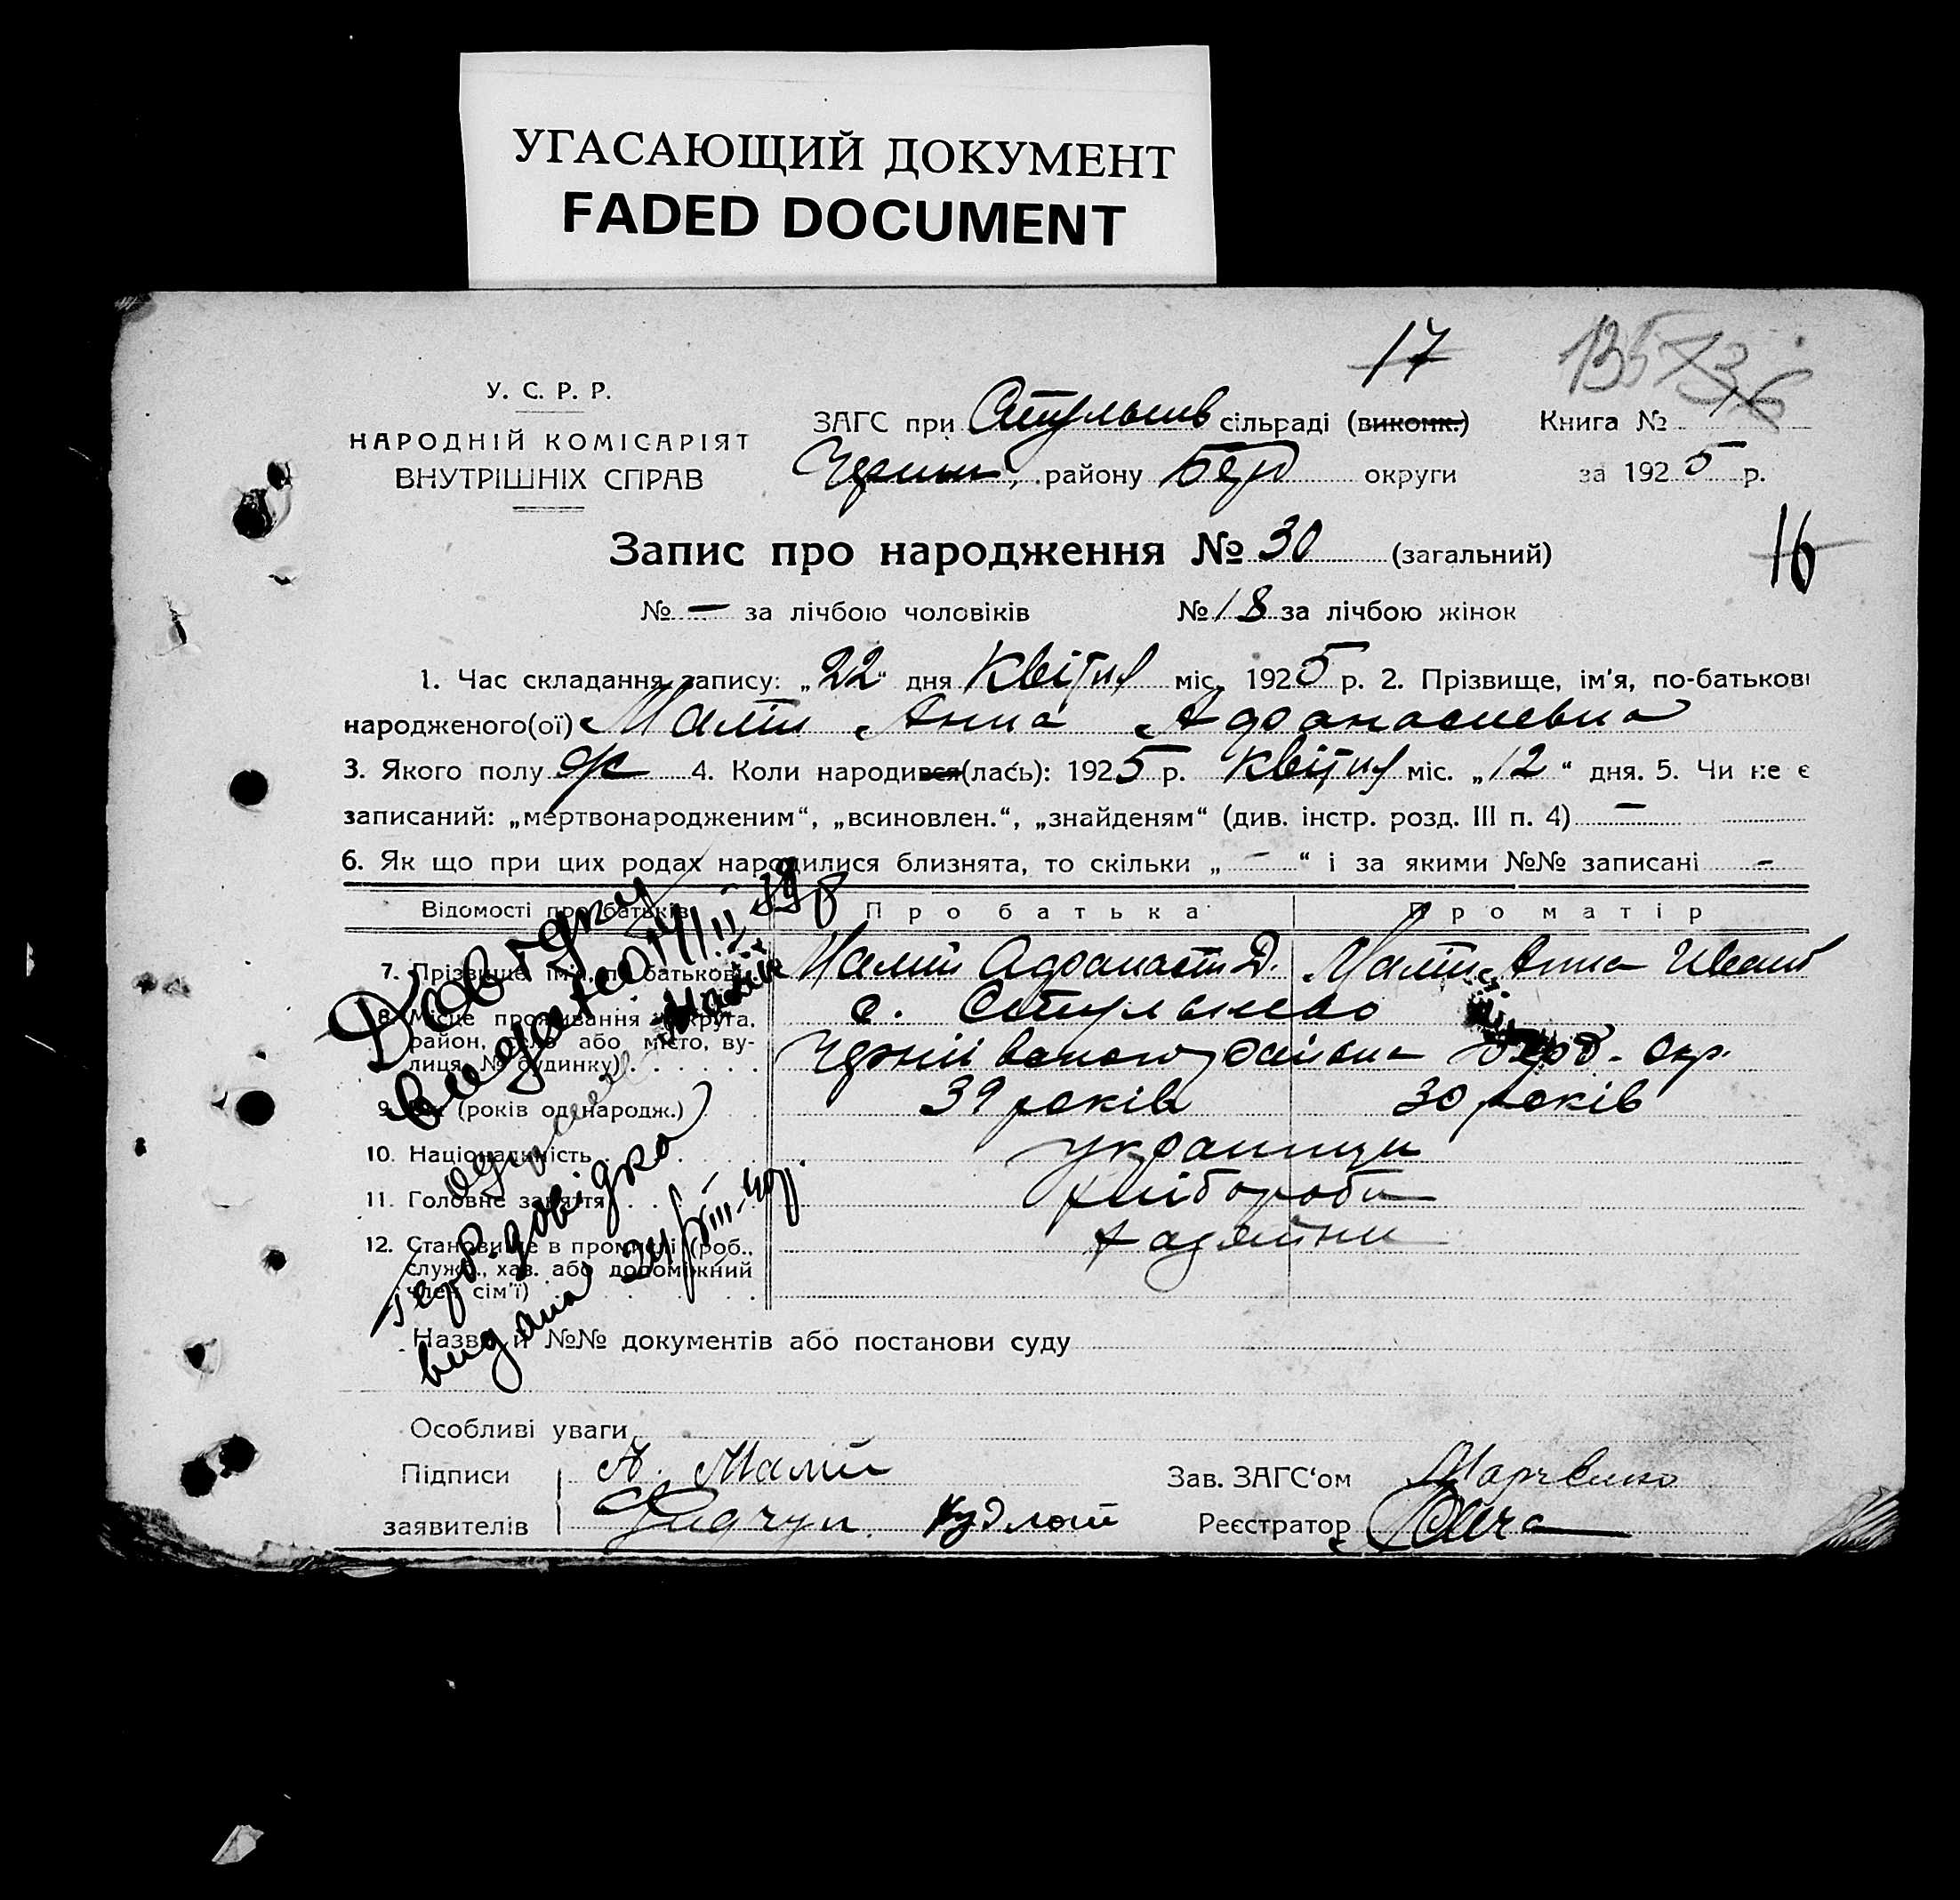 УГАСАЮЩИЙ ДОКУМЕНТ
FADED DOCUMENT
17
У. С. Р. Р.
НАРОДНІЙ КОМІСАРІЯТ
ВНУТРІШНІХ СПРАВ
ЗАГС при сільраді (виконк.) Книга №
району Берд округи за 1925 р.
16
Запис про народження № 30 (загальний)
№ — за лічбою чоловіків № 18 за лічбою жінок
1. Час складання запису: „22“ дня Квітня міс. 1925 р. 2. Прізвище, ім'я, по-батькові
народженого(ої) Малій Анна Афанасиевна
3. Якого полу ж 4. Коли народився(лась): 1925 р. Квітня міс. „12“ дня. 5. Чи не є
записаний: „мертвонародженим“, „всиновлен.“, „знайденям“ (див. інстр. розд. III п. 4) —
6. Як що при цих родах народилися близнята, то скільки „ — “ і за якими №№ записані —
Відомості про батьків Про батька Про матір
7. Прізвище, ім'я, по батькові Малий Афанасій Д. Малій Анна Иван
8. Місце проживання (округа, с.
район, село або місто, ву-
лиця, № будинку) района Берд. Окр.
9. Вік (років од народж.) 39 років 30 років
10. Національність украинци
11. Головне заняття хлібороби
12. Становище в промислі (роб.,
служб., хаз. або допоміжний
член сім'ї)
Довідку
видано
довідка
видана
Назва й №№ документів або постанови суду
Особливі уваги
Підписи А. Малий Зав. ЗАГС'ом Марченко
заявителів Реєстратор